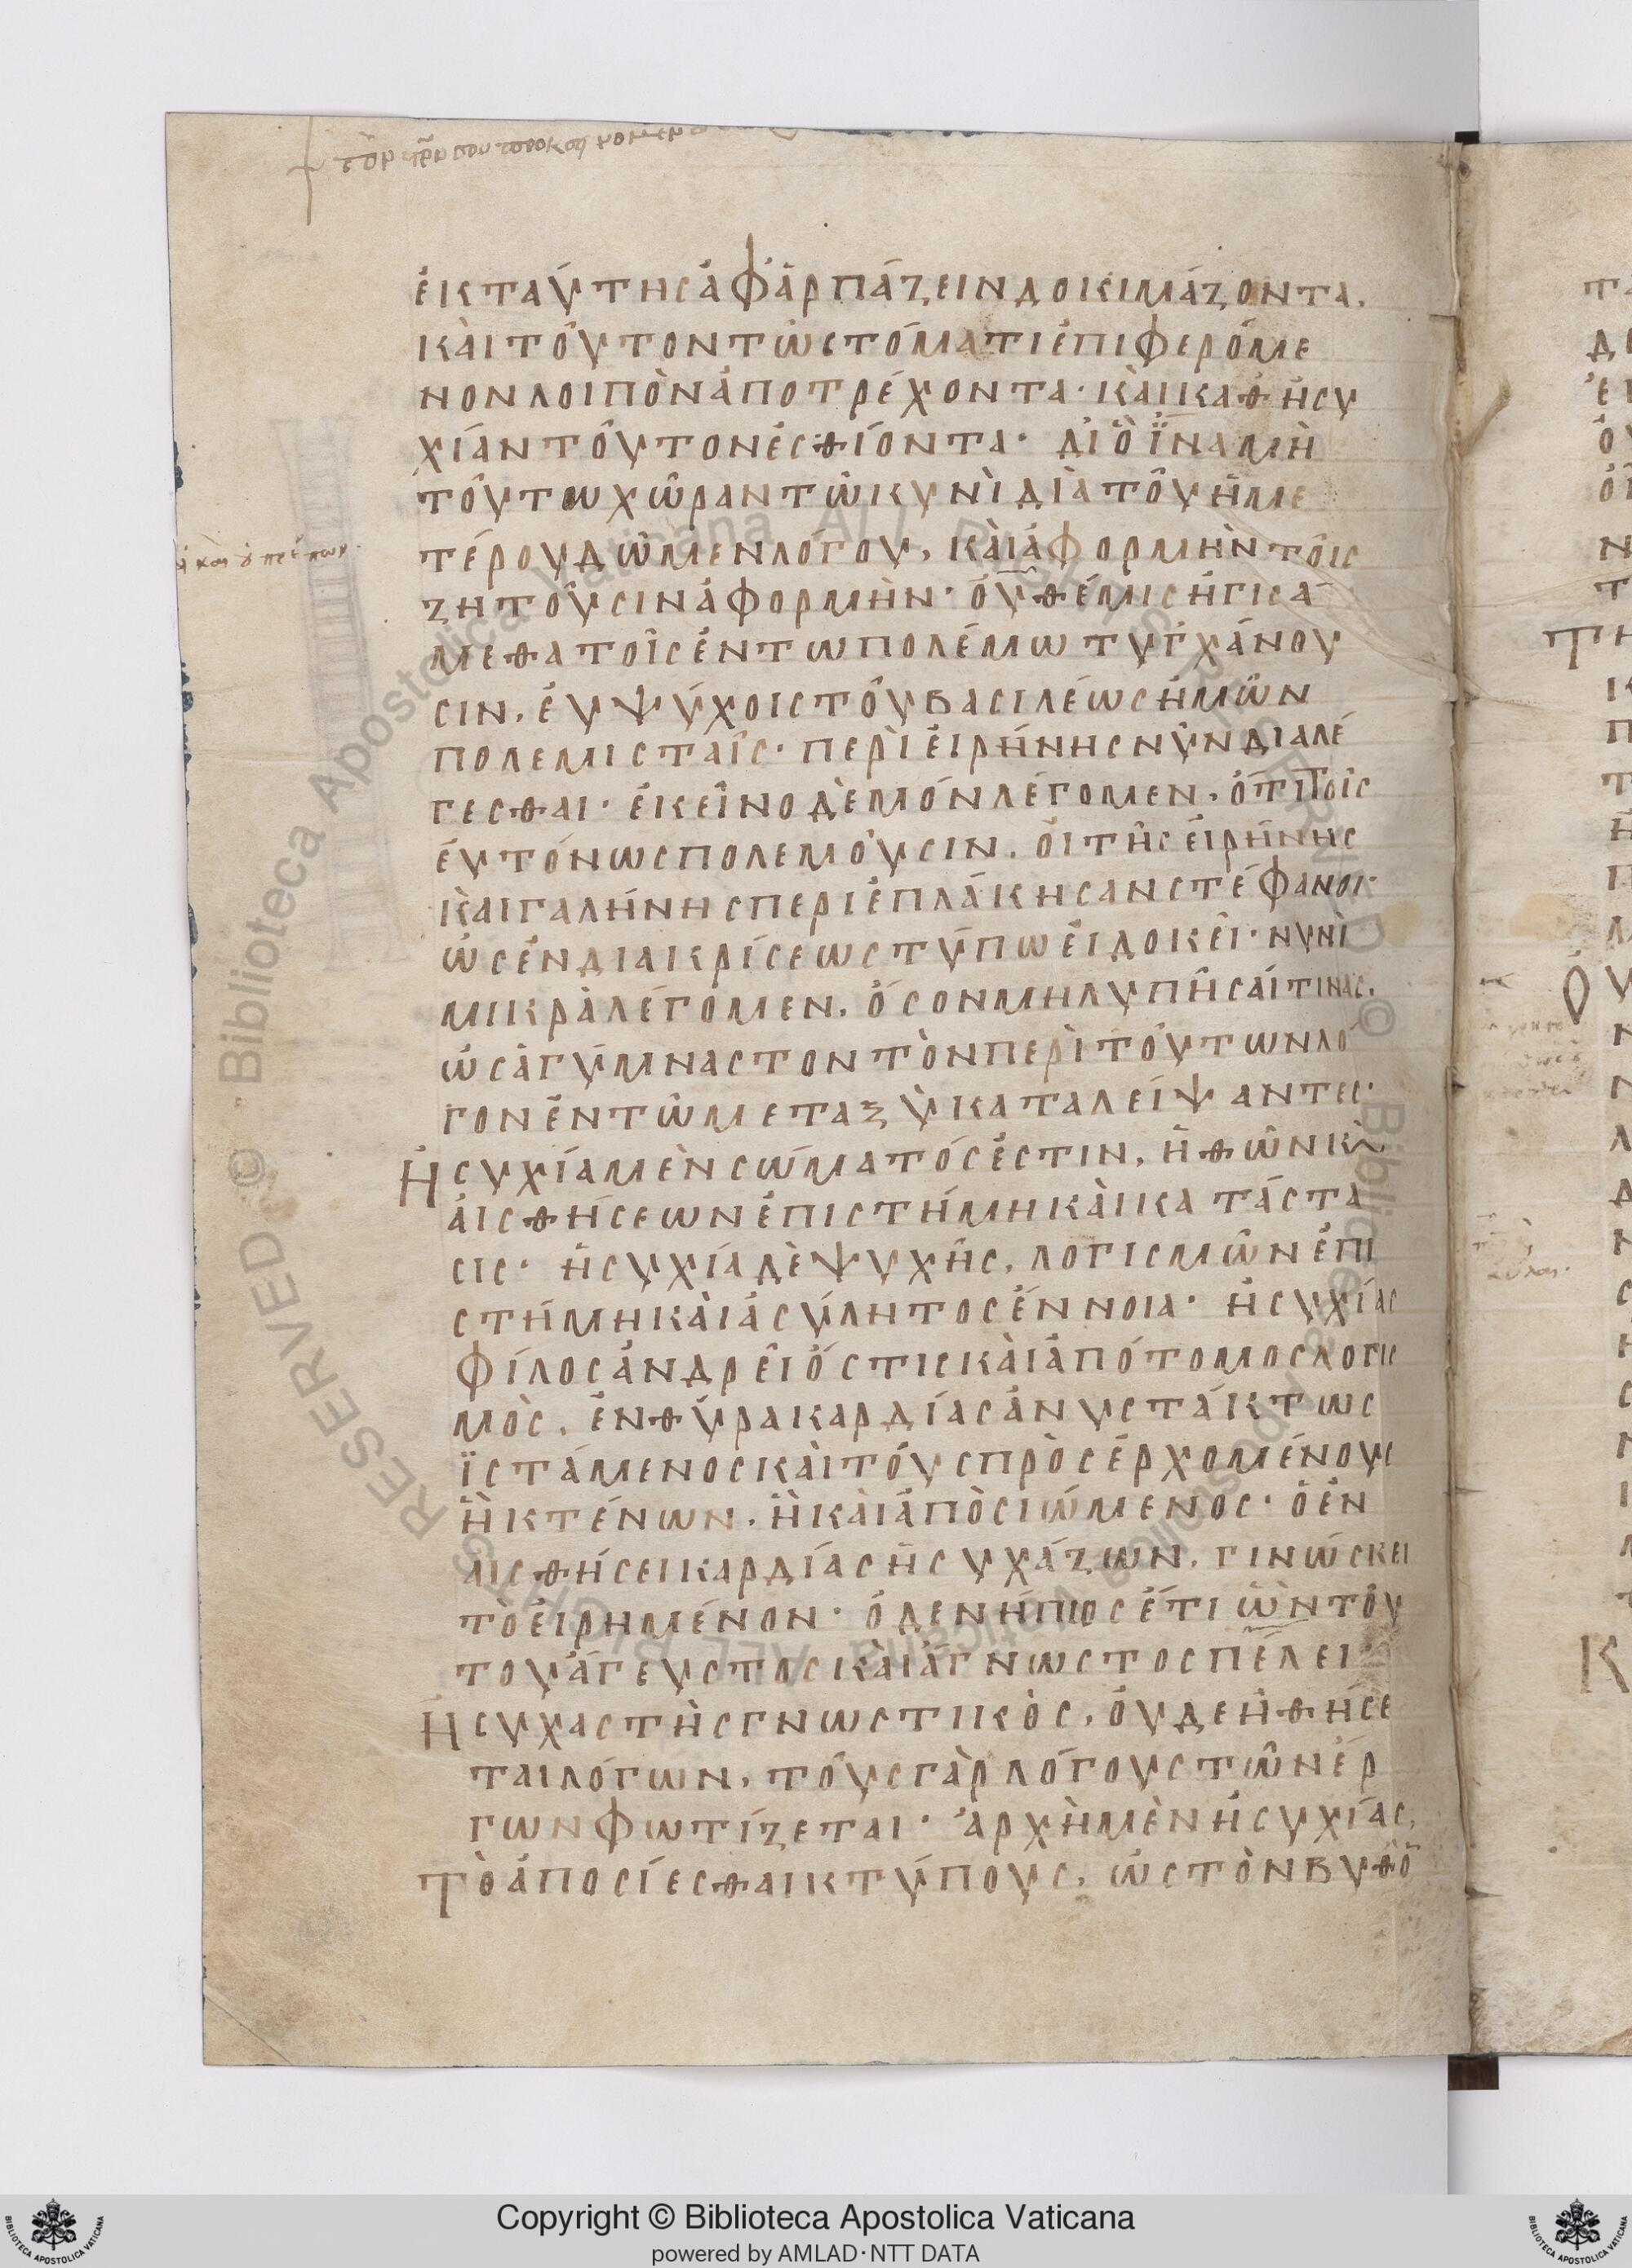 ἐκταύτησἀφἁρπάζεινδοκιμάζοντα,
κὰιτοῦτοντῶστόματιἐπιφερόμε
νονλοιπὸνἀποτρέχοντα· κὰικαθἡσυ
χίαντοῦτονἐσθίοντα· διὸἵναμὴ
τούτωχῶραντῶκυνὶδιὰτοῦἡμε
τέρουδῶμενλόγου, κὰιἀφορμὴντοῖς
ζητοῦσινἀφορμὴν· οὐθέμισἡγισά
μεθατοῖσἐντωπολέμωτυγχάνου
σιν, ἐυψύχοιστοῦβασιλέωσἡμῶν
πολεμισταῖς· περὶἐιρήνησνῦνδιαλέ
γεσθαι· ἐκεῖνοδὲμόνλέγομεν, ὅτιτοῖς
ἐυτόνωσπολεμοῦσιν, ὁιτῆσἐιρήνης
κὰιγαλήνησπεριἐπλάκησανστέφανοι·
ὡσἐνδιακρίσεωστύπωἐιδοκεῖ· νυνὶ
μικρὰλέγομεν, ὅσονμηλυπῆσαίτινας,
ὡσἀγύμναστοντὸνπερὶτούτωνλό
γονἐντῶμεταξὺκαταλείψαντες·
Ἡσυχίαμὲνσώματόσἐστιν, ἠθῶνκὰι
ἀισθήσεωνἐπιστήμηκὰικατάστα
σις· ἡσυχίαδὲψυχῆς, λογισμῶνἐπι
στήμηκὰιἀσύλητοσἔννοια· ἡσυχίας
φίλοσἀνδρεῖόστισκὰιἀπότομοσλογισ
μὸς, ἐνθύρακαρδίασἀνυστάκτως
ἱστάμενοσκὰιτοὺσπρὸσἐρχομένους
ἢκτένων, ἢκὰιἀπὸσιώμενος· ὁἐν
αισθήσεικαρδίασἡσυχάζων, γινώσκει
τὸἐιρημένον· ὁδενήπιοσἔτιὢντού
τουἄγευστοσκὰιἄγνωστοσπέλει·
Ἡσυχαστὴσγνωστικὸς, οὐδεηθήσε
ταιλόγων, τοὺσγὰρλόγουστῶνἔρ
γωνφωτίζεται· ἀρχὴμὲνἡσυχίας,
τὸἀποσίεσθαικτύπους, ὡστὸνβυθὸ
Copyright © Biblioteca Apostolica Vaticana
powered by AMLAD·NTT DATA